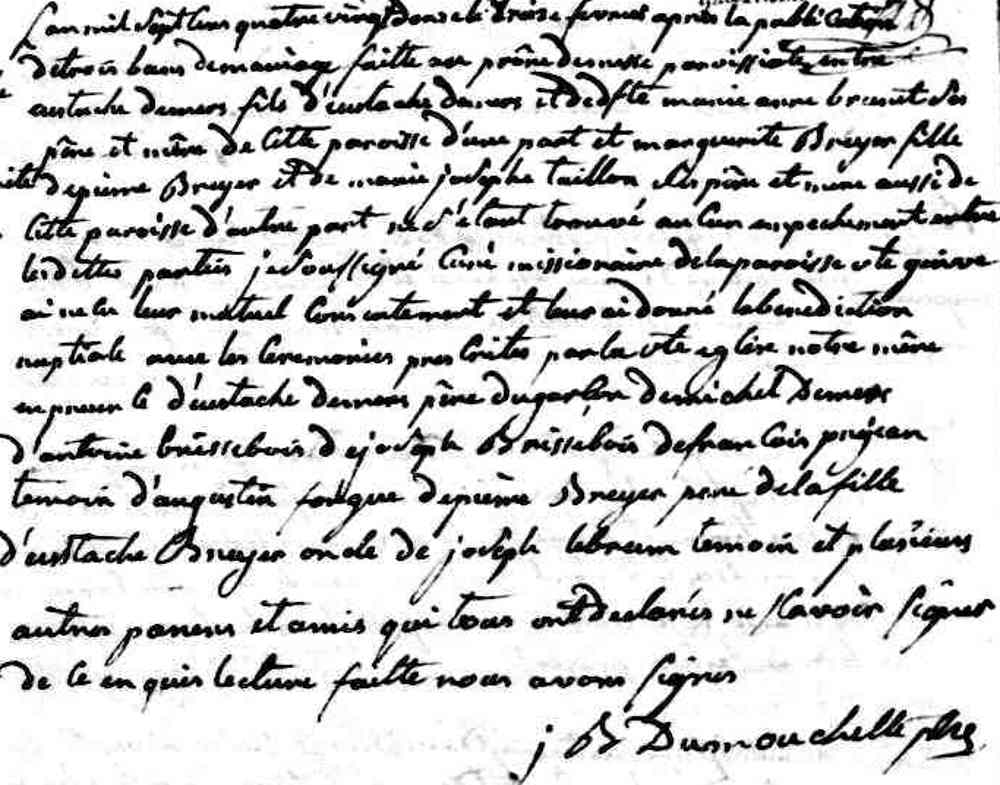 L'an mil sept cens quatre vingt douze le treise fevrier après la publication
de trois bans de mariage faitte au prône des messe paroissiale entre
eustache demers fils d'eustache demers et de dfte marie anne brunet ses
père et mère de cette paroisse d'une part et marguerite Breyer fille
de pierre Breyer et de marie josephe taillon ses père et mere aussi de
cette paroisse d'autre part ne s'étant trouvé aucun empechement entre
lesdittes parties je soussigné curé missionaire de la paroisse ste geneve
ai recu leur mutuel consentement et leur ai donné la benediction
nuptiale avec les ceremonies prescrites par la ste eglise notre mère
en presen ce d'eustache demers père du garson de michel Demers
d'antoine brissebois de joseph Brissebois de francois prejean
temoin d'augustin de pierre Breyer pere de la fille
d'eustache Breyer oncle de joseph lebrun temoin et plusieurs
autres parens et amis qui tous ont declarés ne scavoir signer
de ce enquis lecture faitte nous avons signés
j B Dumouchelle ptre